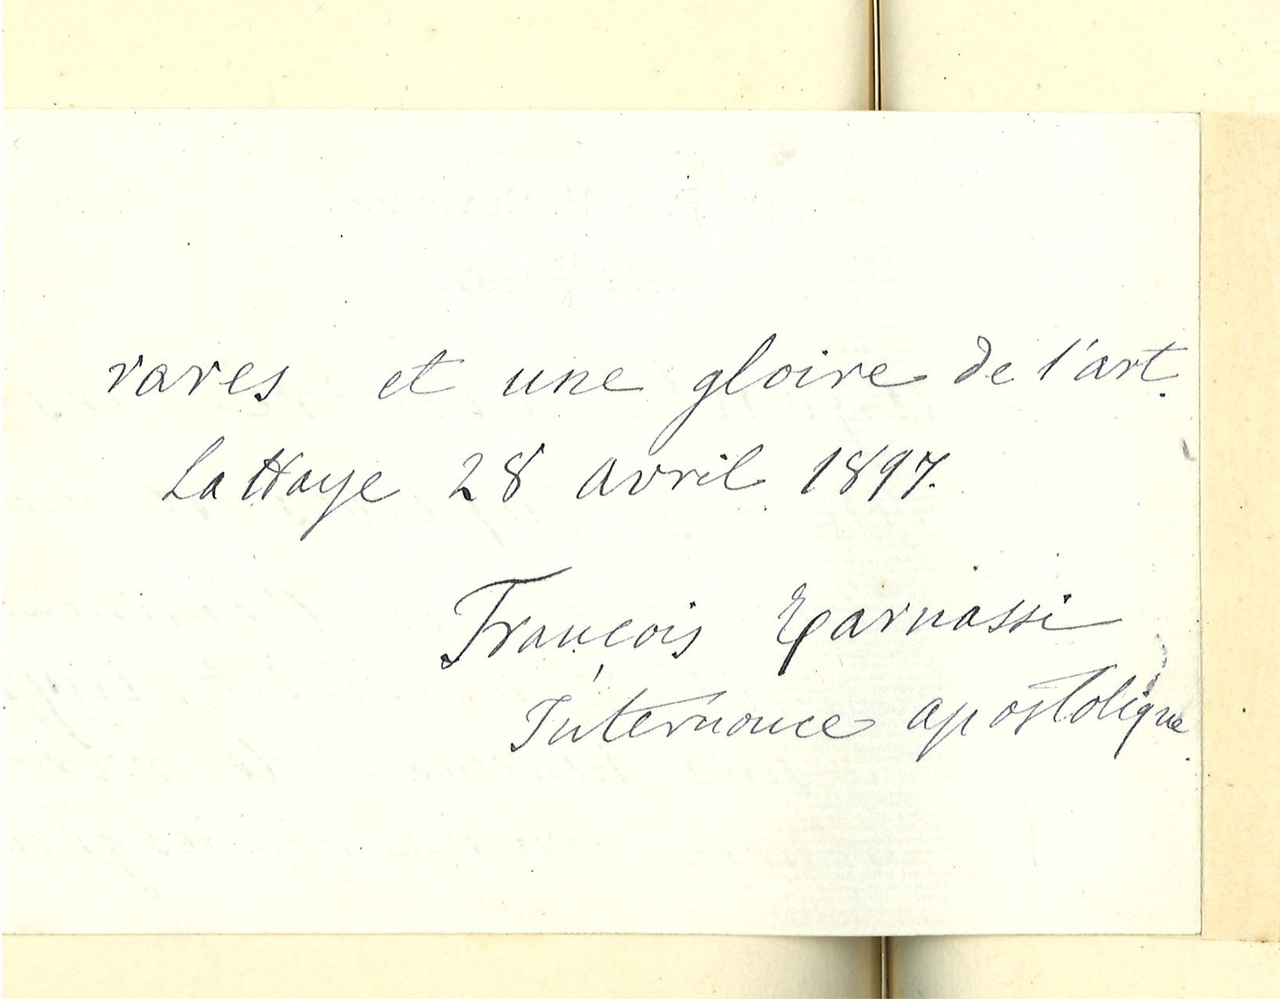 rares et une gloire de l'art.
La Haye 28 avril 1897.
François Tarnassi
Internonce apostolique.